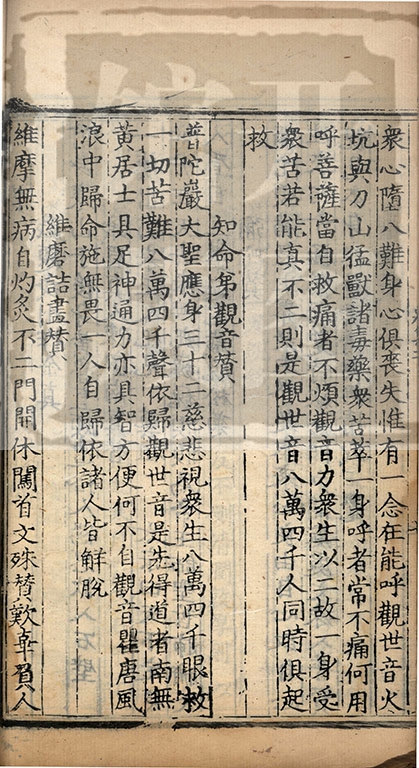 衆心墮八難身心俱喪失惟有一念在能呼觀世音火
坑與刀山猛獸諸毒藥衆苦萃一身呼者常不痛何用
呼菩薩當自救痛者不煩觀音力衆生以二故一身受
衆苦若能真不二則是觀世音八萬四千人同時俱起
救
知命弟觀音贊
普陀巖大聖應身三十二慈悲視衆生八萬四千眼救
一切苦難八萬四千聲依歸觀世音是先得道者南無
黄居士具足神通力亦具智方便何不自觀音瞿唐風
浪中歸命施無畏一人自歸依諸人皆解脫
維摩詰畫贊
維摩無病自灼灸不二門開休闖首文殊贊歎辜負人